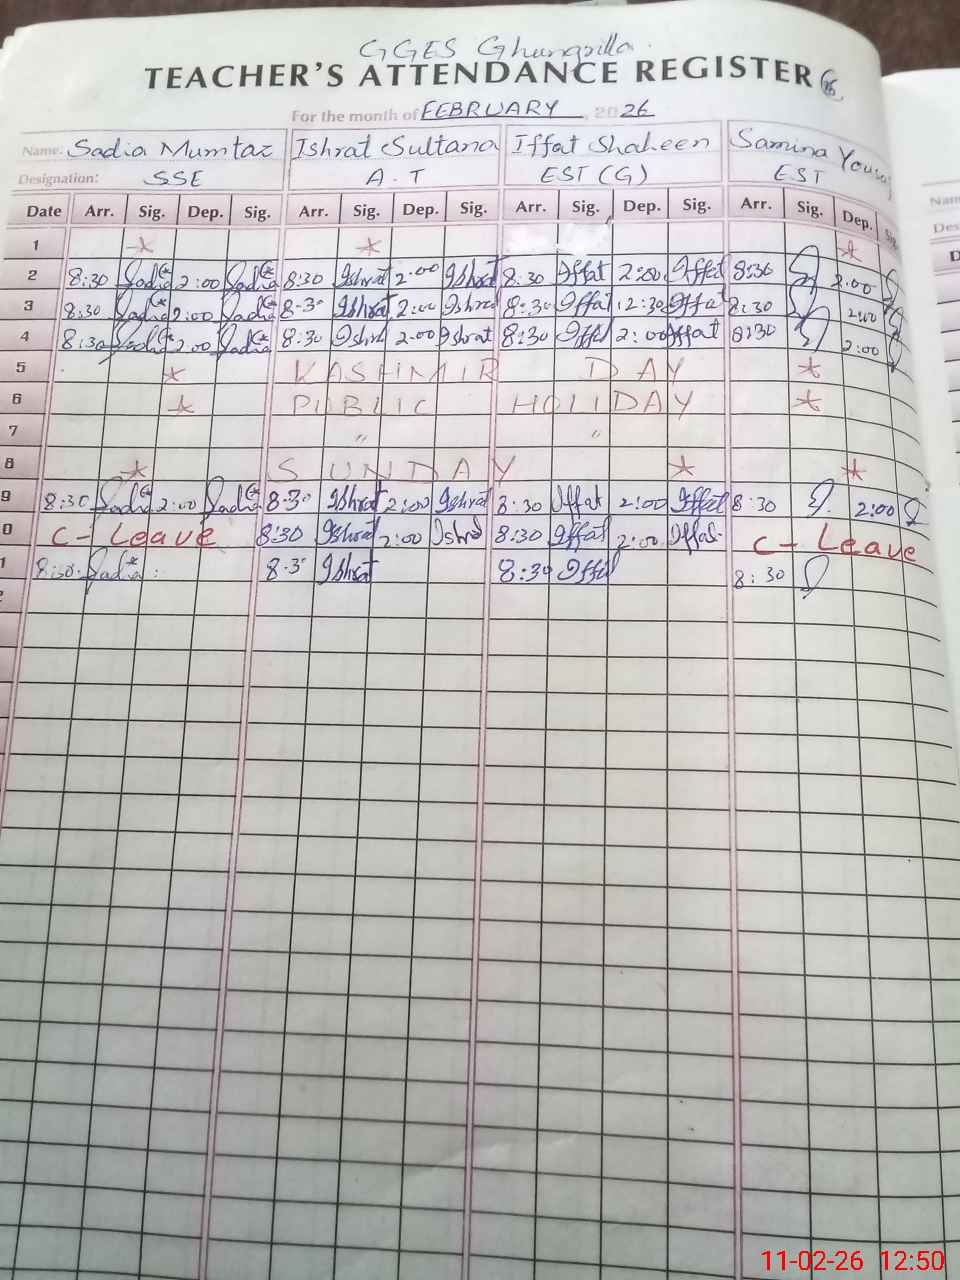 GGES Ghungrilla
TEACHER'S ATTENDANCE REGISTER
For the month of FEBRUARY, 2026
Name: Sadia Mumtaz Ishrat Sultana Iffat Shaheen Samina
Designation: SSE A.T EST (G) EST
Date Arr. Sig. Dep. Sig. Arr. Sig. Dep. Sig. Arr. Sig. Dep. Sig. Arr. Sig. Dep. Sig.
1
2 8:30 Sadia 2:00 Sadia 8:30 Ishrat 2:00 Ishrat 8:30 Iffat 2:00 Iffat 8:30 2:00
3 8:30 Sadia 2:00 Sadia 8:30 Ishrat 2:00 Ishrat 8:30 Iffat 12:30 Iffat 8:30 2:00
4 8:30 Sadia 2:00 Sadia 8:30 Ishrat 2:00 Ishrat 8:30 Iffat 2:00 Iffat 8:30 2:00
5 KASHMIR DAY
6 PUBLIC HOLIDAY
7 " "
8 SUNDAY
9 8:30 Sadia 2:00 Sadia 8:30 Ishrat 2:00 Ishrat 8:30 Iffat 2:00 Iffat 8:30 2:00
0 C- Leave 8:30 Ishrat 2:00 Ishrat 8:30 Iffat 2:00 Iffat C- Leave
1 8:30 Sadia 8:30 Ishrat 8:30 Iffat 8:30
11-02-26 12:50